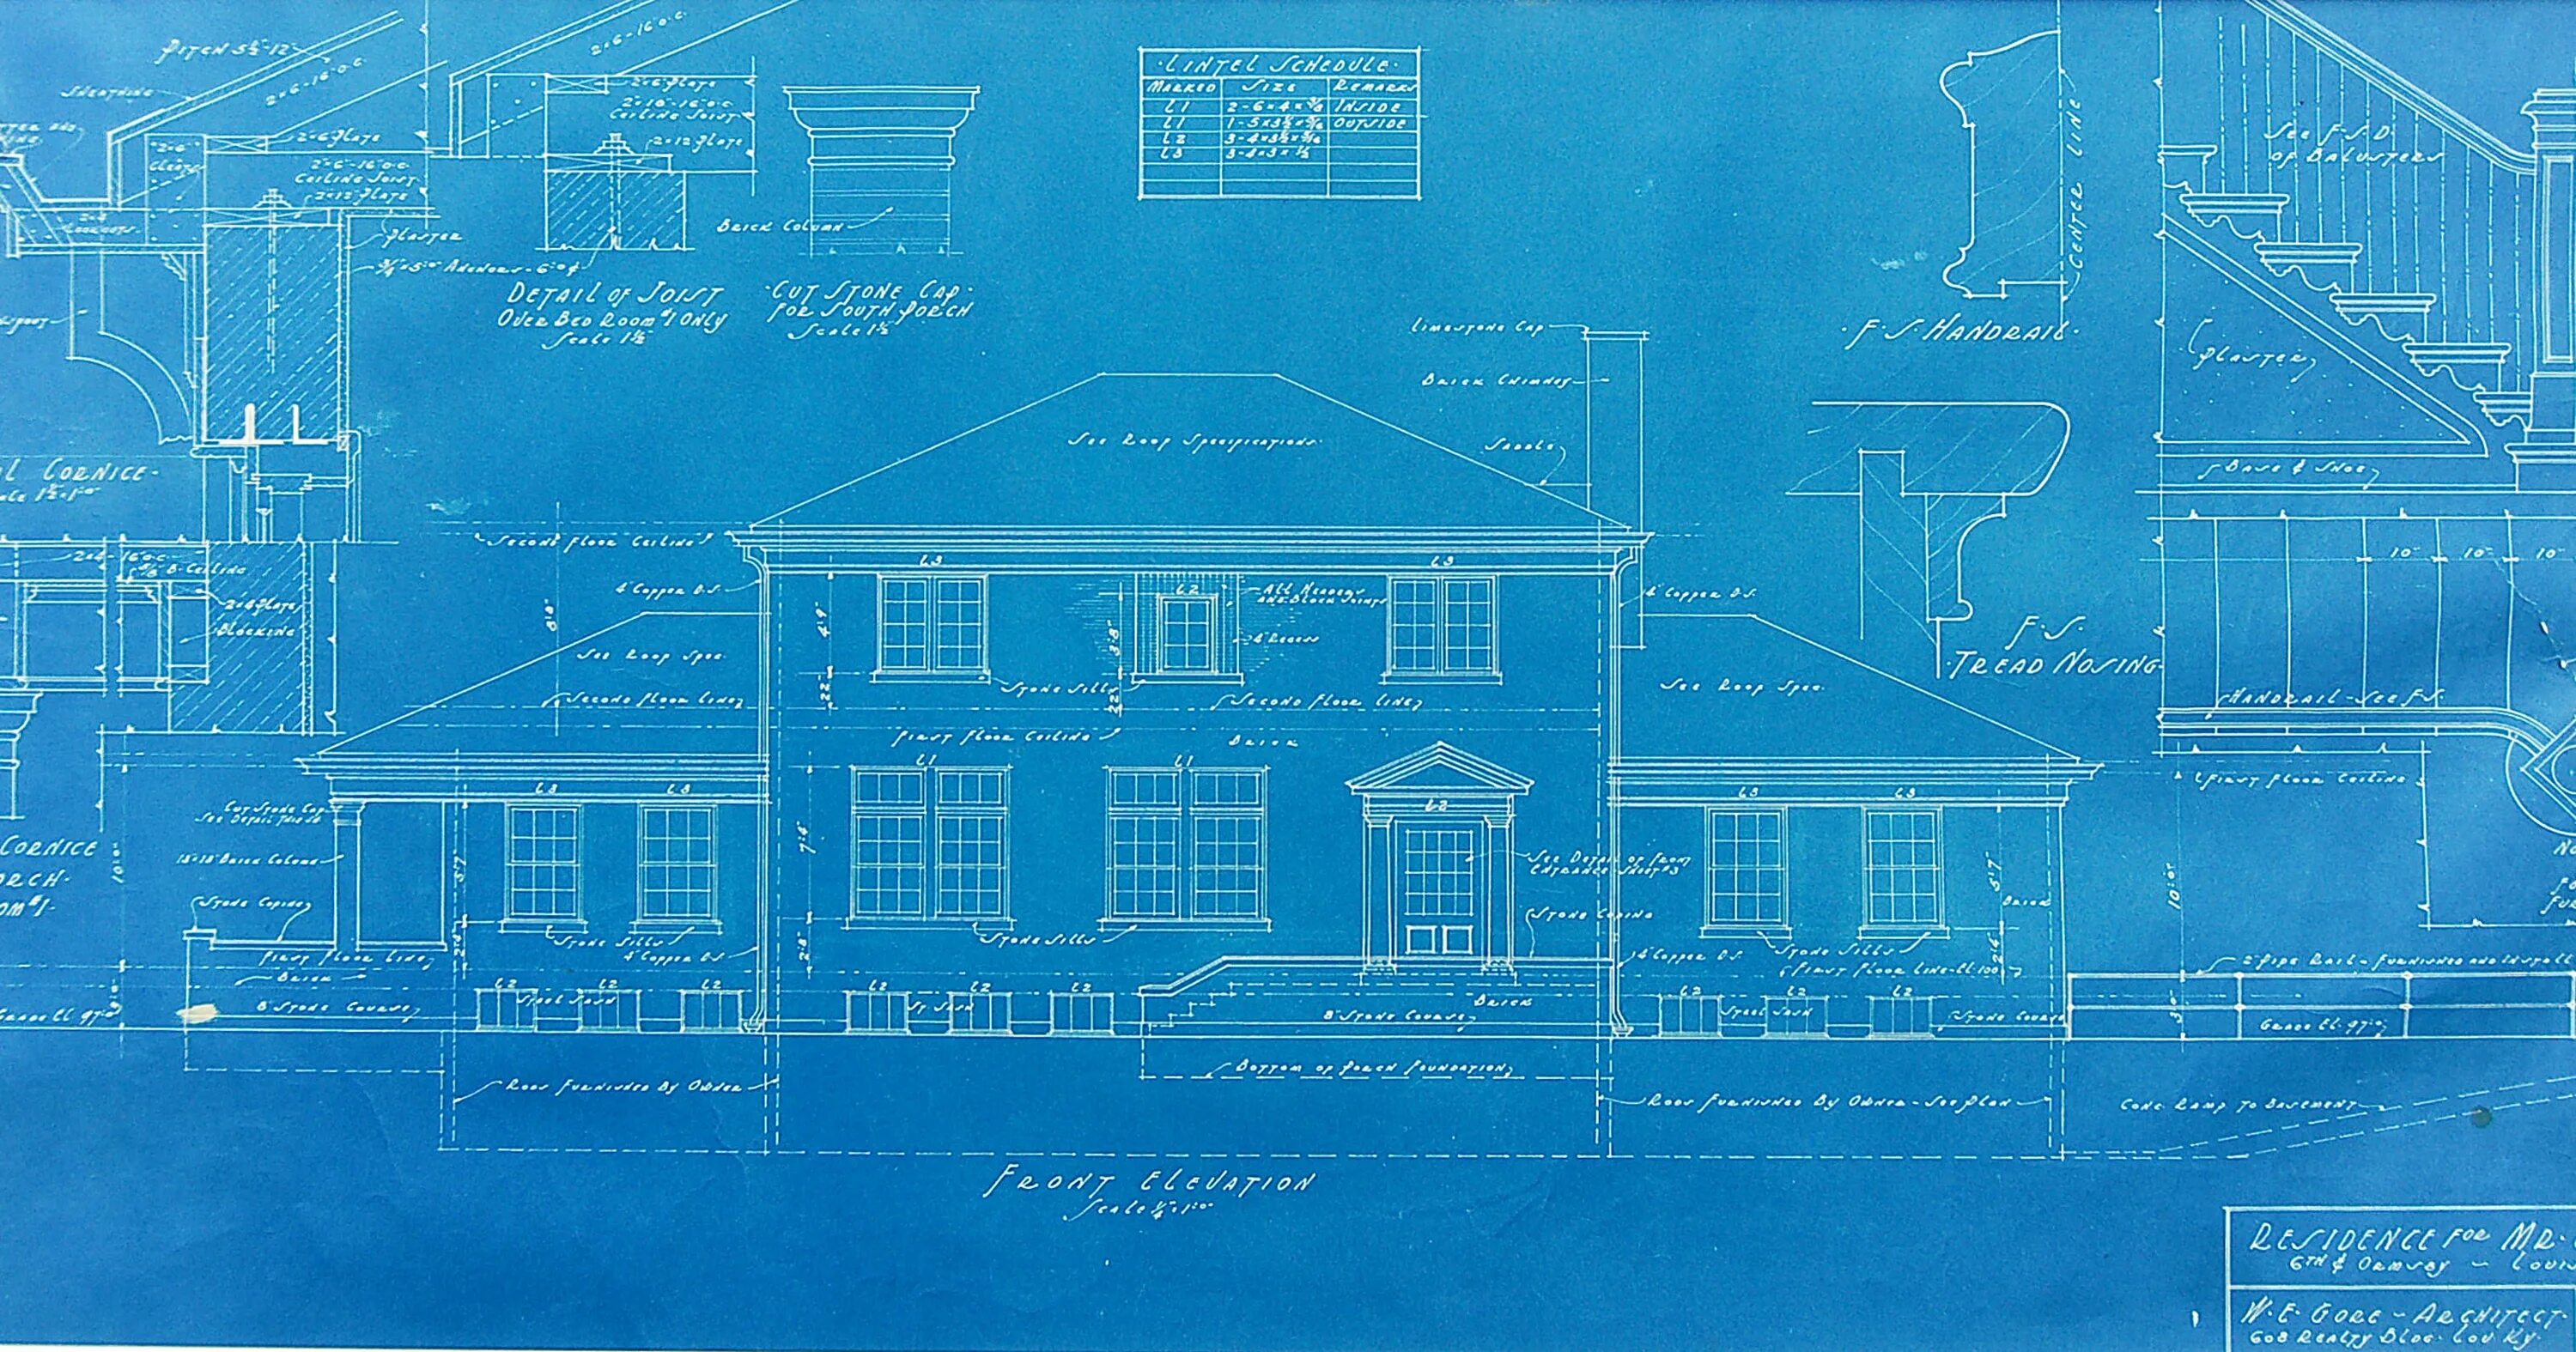 PITCH 5½"-12"
SHEATHING
2"x6"-16"o.c.
2"x6"-16"o.c.
2"x6" PLATE
2"x10"-16"o.c.
CEILING JOIST
2"x12" PLATE
2"x6" PLATE
2"x6"
CLEATS
2"x6"-16"o.c.
CEILING JOIST
2"x12" PLATE
2"x4"
LOOKOUTS
PLASTER
¾"x5'-0" ANCHORS-6'-0"
DETAIL OF JOIST
OVER BED ROOM #1 ONLY
SCALE 1½"
BRICK COLUMN
CUT STONE CAP
FOR SOUTH PORCH
SCALE 1½"
LINTEL SCHEDULE
MARKED SIZE REMARKS
L1 2-6x4x⅜ INSIDE
L1 1-5x3½x5/16 OUTSIDE
L2 3-4x3½x5/16
L3 3-4x3x½
CENTER LINE
F.S. HANDRAIL
SEE F.S.D.
OF BALUSTERS
PLASTER
BASE & SHOE
F.S.
TREAD NOSING
10" 10" 10"
HANDRAIL-SEE F.S.
CORNICE
2"x4"-16"o.c.
⅝" B-CEILING
2"x4" PLATE
BLOCKING
CORNICE
LIMESTONE CAP
BRICK CHIMNEY
SADDLE
SEE ROOF SPECIFICATIONS
SECOND FLOOR CEILING
L3
L2
L3
4" COPPER D.S.
ALL HEADERS
AND BLOCK JOINTS
4" RECESS
4" COPPER D.S.
8'-8"
4'-9"
3'-8"
SEE ROOF SPEC.
SEE ROOF SPEC.
STONE SILLS
22"
22"
SECOND FLOOR LINE
SECOND FLOOR LINE
FIRST FLOOR CEILING
BRICK
L1
L1
L2
L3
L3
L3
L3
FIRST FLOOR CEILING
CUT STONE CAP
SEE DETAIL THIS SH.
18"x18" BRICK COLUMN
STONE COPING
10'-0"
5'-7"
7'-4"
SEE DETAIL OF FRONT
ENTRANCE SHEET #3
STONE COPING
5'-7"
BRICK
10'-0"
STONE SILLS
4" COPPER D.S.
STONE SILLS
2'-8"
4" COPPER D.S.
STONE SILLS
FIRST FLOOR LINE-EL.100
FIRST FLOOR LINE
BRICK
8" STONE COURSE
GRADE EL. 97'-0"
L2 L2 L2
STEEL SASH
L2 L2 L2
ST. SASH
BRICK
8" STONE COURSE
L2 L2 L2
STEEL SASH
STONE COURSE
2" PIPE RAIL-FURNISHED AND INSTALL
GRADE EL. 97'-0"
3'-0"
BOTTOM OF PORCH FOUNDATION
RODS FURNISHED BY OWNER
RODS FURNISHED BY OWNER-SEE PLAN
CONC. RAMP TO BASEMENT
FRONT ELEVATION
SCALE ¼"=1'-0"
RESIDENCE FOR MR.
6TH & ORMSBY - LOUIS
W.E. GORE-ARCHITECT
608 REALTY BLDG. LOU. KY.